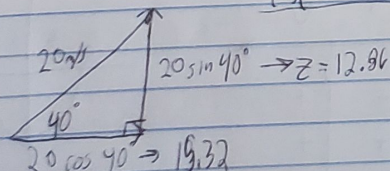 20m/s
20 sin 40° → z = 12.86
40°
20 cos 40 → 15.32